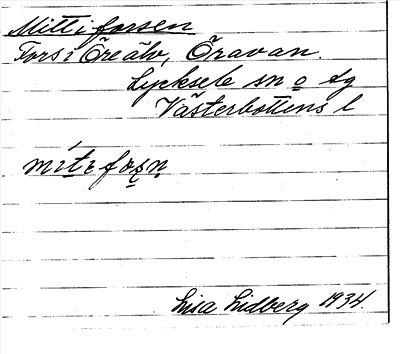 Mitt i forsen
Fors i Öre älv, Öravan.
Lycksele sn o tg
Västerbottens l
mìt i fo̱ṣṇ
Lisa Lidberg 1934.